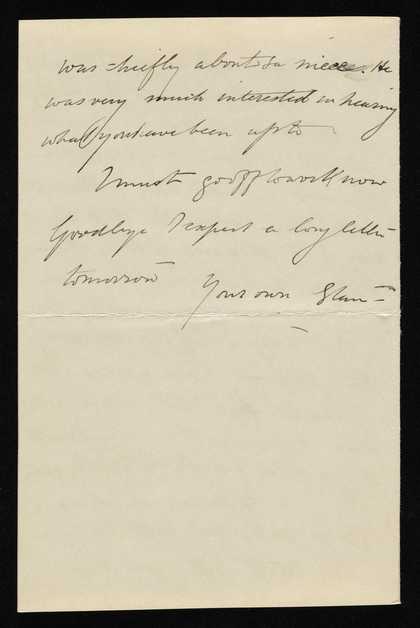 was chiefly about a niece. He
was very much interested in hearing
what you have been up to
I must go off to work now
Goodbye I expect a long letter
tomorrow
Your own